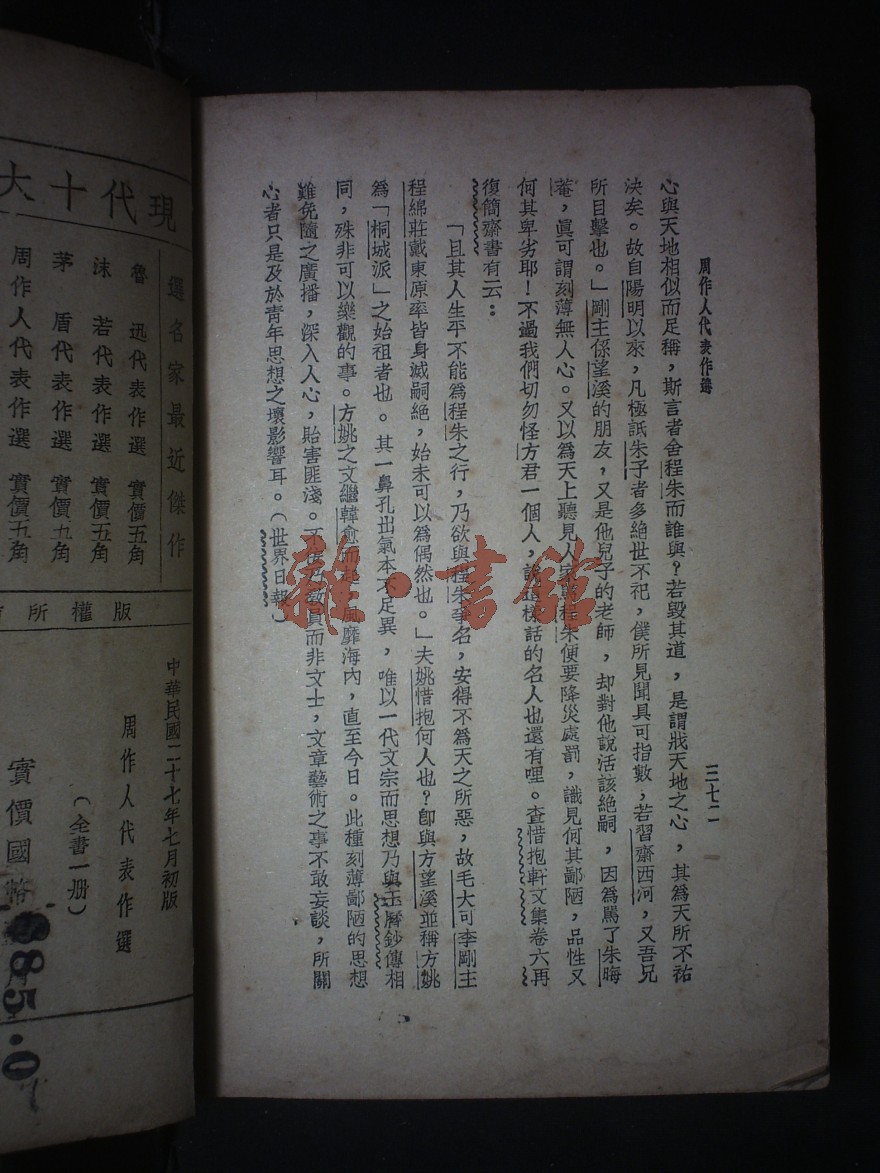 周作人代表作選
三七二
心與天地相似而足稱，斯言者舍程朱而誰與？若毀其道，是謂戕天地之心，其為天所不祐
決矣。故自陽明以來，凡極詆朱子者多絕世不祀，僕所見聞具可指數，若習齋西河，又吾兄
所目擊也。」剛主係望溪的朋友，又是他兒子的老師，却對他說活該絕嗣，因為罵了朱晦
菴，真可謂刻薄無人心。又以為天上聽見人家罵程朱便要降災處罰，識見何其鄙陋，品性又
何其卑劣耶！不過我們切勿怪方君一個人，說這樣話的名人也還有哩。查惜抱軒文集卷六再
復簡齋書有云：
「且其人生平不能為程朱之行，乃欲與程朱爭名，安得不為天之所惡，故毛大可李剛主
程綿莊戴東原率皆身滅嗣絕，始未可以為偶然也。」夫姚惜抱何人也？卽與方望溪並稱方姚
為「桐城派」之始祖者也。其一鼻孔出氣本不足異，唯以一代文宗而思想乃與玉曆鈔傳相
同，殊非可以樂觀的事。方姚之文繼韓愈而起，風靡海內，直至今日。此種刻薄鄙陋的思想
難免隨之廣播，深入人心，貽害匪淺。不佞乃教員而非文士，文章藝術之事不敢妄談，所關
心者只是及於青年思想之壞影響耳。（世界日報）
現代十大
選名家最近傑作
魯迅代表作選 實價五角
沫若代表作選 實價五角
茅盾代表作選 實價五角
周作人代表作選 實價五角
版權所
中華民國二十七年七月初版
周作人代表作選
（全書一册）
實價國幣
885.0
雜·書館